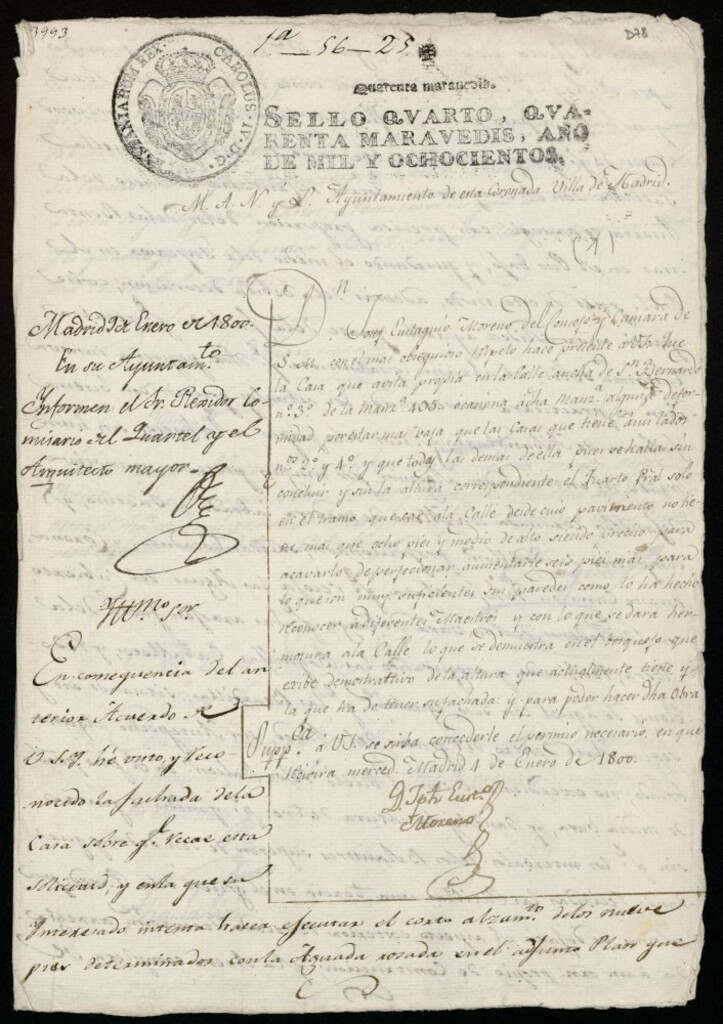 3993
1a - 56 - 25
D78
HISPANIARUM REX. CAROLUS. IV. D. G.
Quarenta maravedis.
SELLO QVARTO, QVA-
RENTA MARAVEDIS, AÑO
DE MIL Y OCHOCIENTOS.
M. A. N. y L. Ayuntamiento de esta Coronada Villa de Madrid.
Dn Josef Eustaquio Moreno, del Consejo y Camara de
S. M. con el mas obsequioso respeto hace presente a V.I. Que
la Casa que avita propia en la Calle ancha de Sn. Bernardo
n.º 3º de la manz.ª 495 ocasiona dha manz.ª alguna defor-
midad por estar mas baja que las Casas que tiene a sus lados
nos 2º y 4º y que todas las demas de ella, pues se halla sin
concluir y sin la altura correspondiente el Quarto Pral solo
en el tramo que cae ala Calle desde cuio pavimento no tie-
ne mas que ocho pies y medio de alto siendo preciso para
acavarlo de perfeccionar aumentarle seis pies mas para
lo que son muy suficientes sus paredes como lo ha hecho
reconocer a diferentes Maestros y con lo que se dara her-
mosura ala Calle lo que se demuestra en el bosquejo que
exibe demostrattivo de la altura que actualmente tiene y
la que ha de tener su fachada: y para poder hacer dha Obra
Suppca. á V.I. se sirba concederle el permiso necesario, en que
recivira merced. Madrid 4 de Enero de 1800.
D. Jph Eusto
Moreno
Madrid 9 de Enero de 1800.
En su Ayuntamto
Informen el Sr. Rexidor Co-
misario del Quartel y el
Arquitecto mayor
Yllmo Sor.
En consequencia del an
terior Acuerdo de
V.S.Y. hé visto, y reco-
nocido la fachada dela
Casa sobre qe Recae esta
Solicitd, y enla que su
Interesado intenta hacer executar el corto alzamto delos nueve
pies determinados conla Aguada rosada en el adjunto Plan que